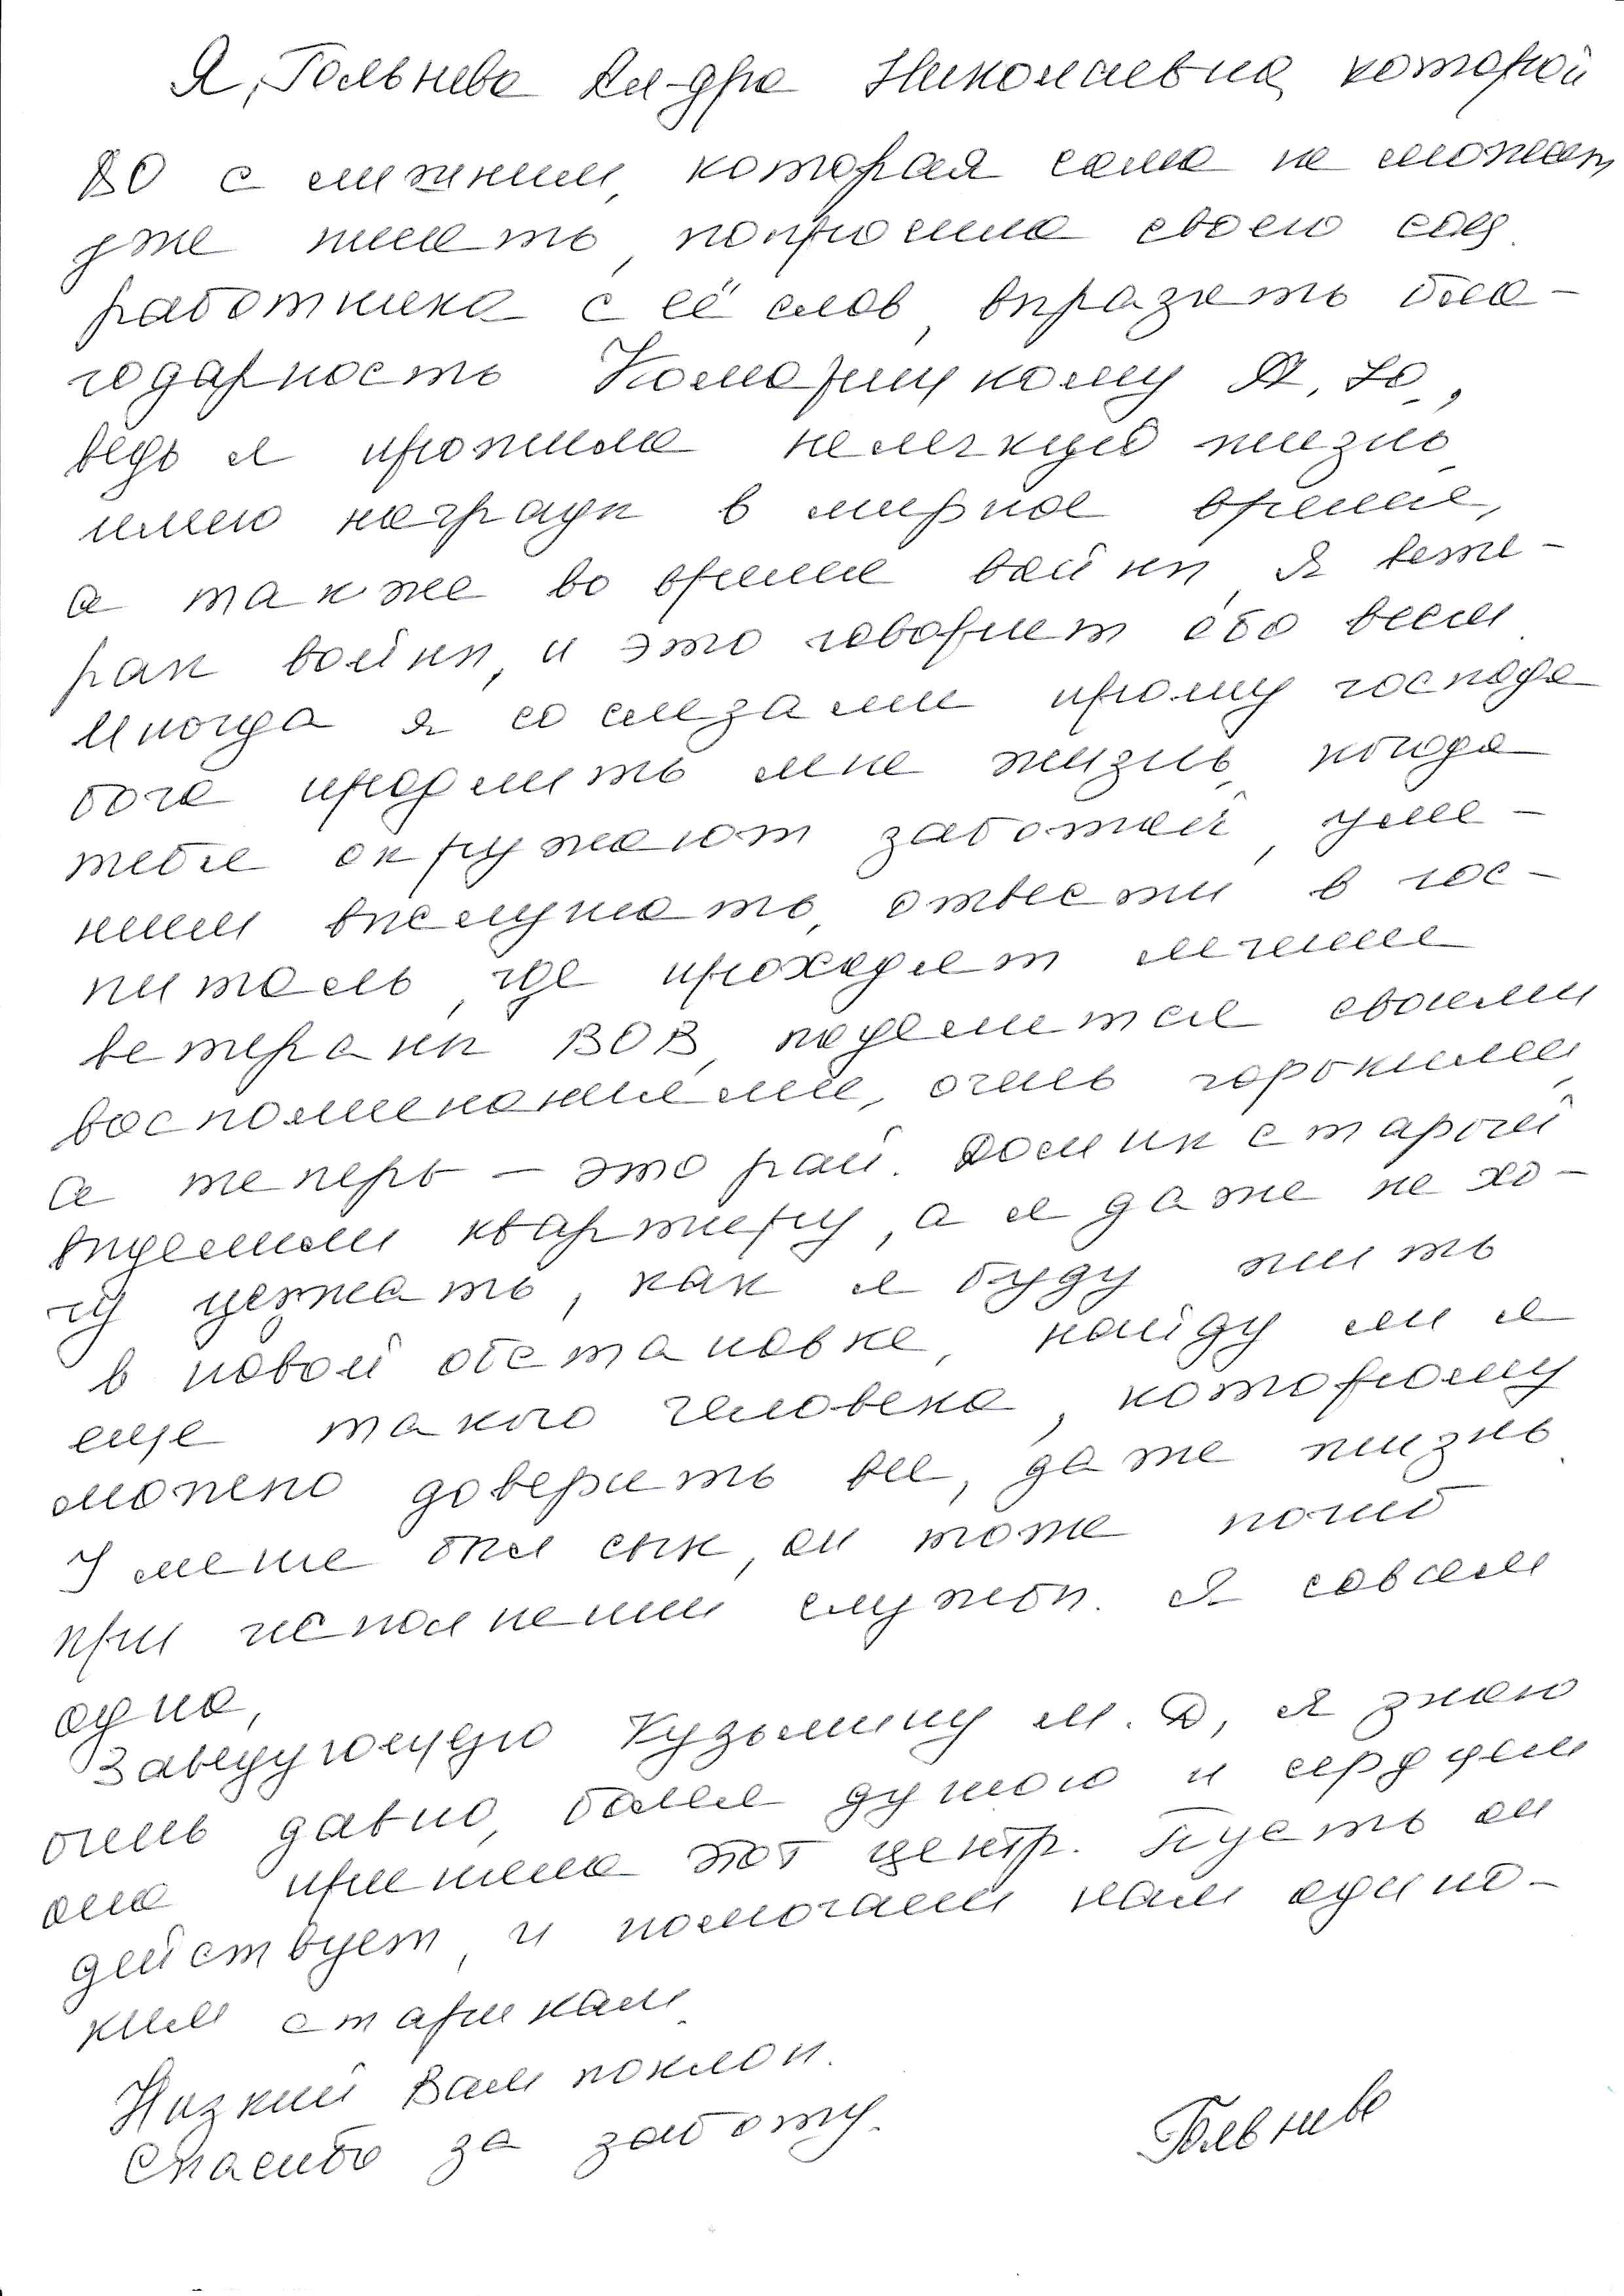 Я, Гольнева Ал-дра Николаевна, которой
80 с лишним, которая сама не может
уже писать, попросила своего соц.
работника с её слов, выразить бла-
годарность Комарицкому А. Ю.,
ведь я прожила нелегкую жизнь,
имею награды в мирное время,
а также во время войны, я вете-
ран войны, и это говорит обо всем.
Иногда я со слезами прошу господа
бога продлить мне жизнь, когда
тебя окружают заботой, уме-
нием выслушать, отвести в гос-
питаль, где проходят лечение
ветераны ВОВ, поделиться своими
воспоминаниями, очень горькими,
а теперь – это рай. Домик старый
выделили квартиру, а я даже не хо-
чу уезжать, как я буду жить
в новой обстановке, найду ли я
еще такого человека, которому
можно доверить все, даже жизнь.
У меня был сын, он тоже погиб
при исполнении службы. Я совсем
одна,
Заведующую Кузьмину М. Д, я знаю
очень давно, более душою и сердцем
она приняла этот центр. Пусть он
действует, и помогает нам одино-
ким старикам.
Низкий Вам поклон.
Спасибо за заботу.
Гольнева